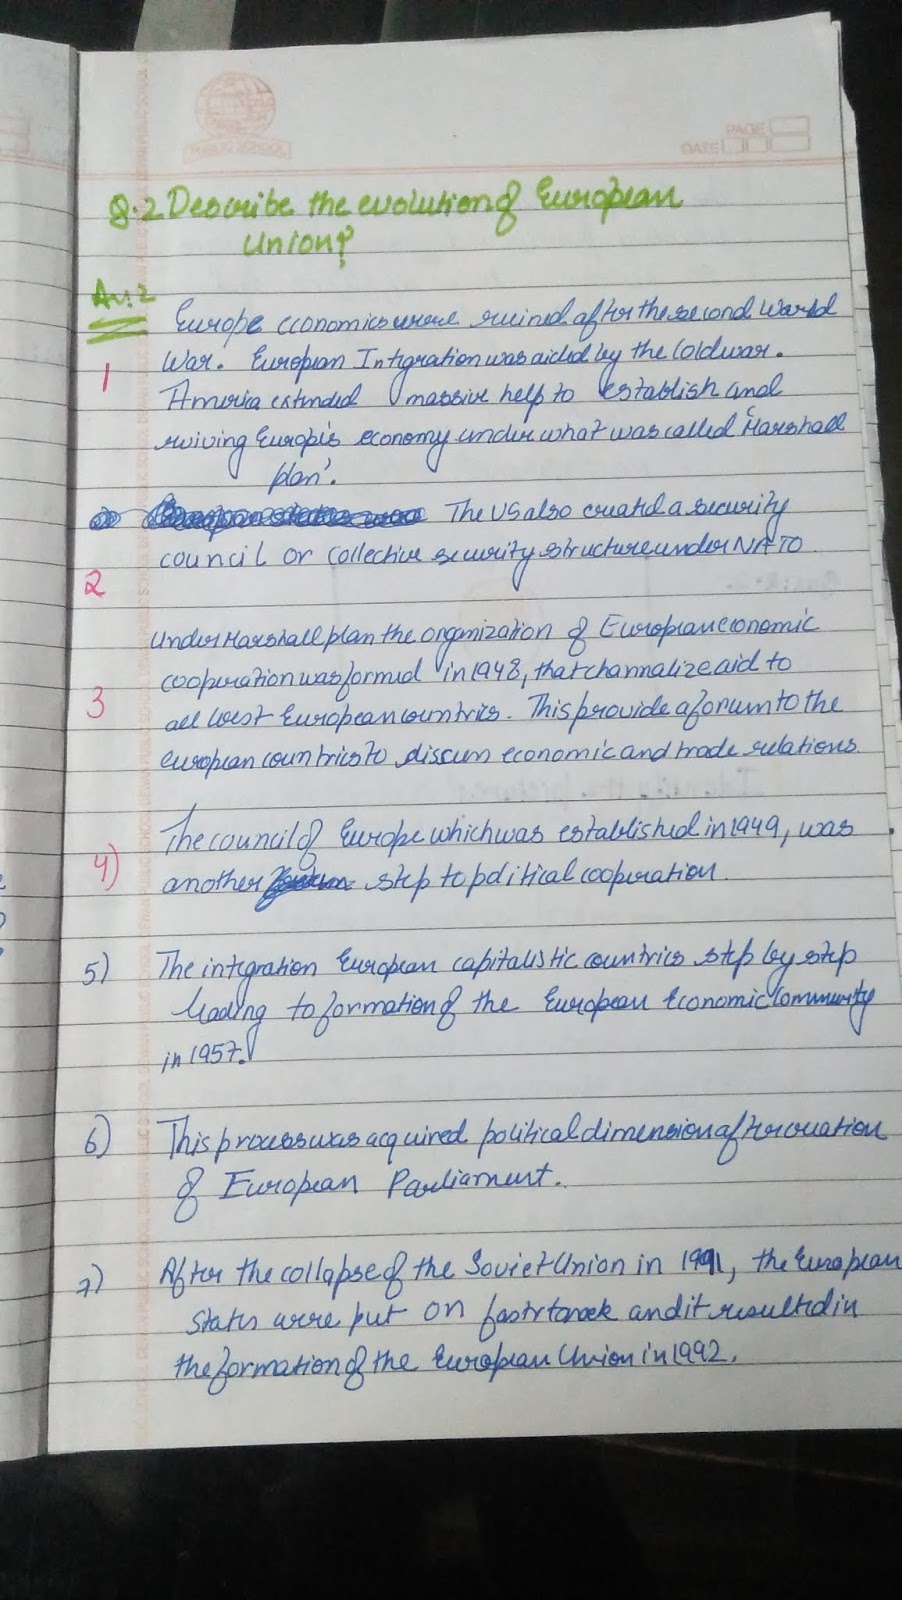 PUBLIC SCHOOL
PAGE
DATE
Q.2 Describe the evolution of European
Union?
Ans2
Europe economics were ruined after the second World
1 War. European Integration was aided by the Cold war.
America extended massive help to establish and
reviving Europe's economy under what was called 'Marshall
plan'.
The US also created a security
council or collective security structure under NATO.
2
Under Marshall plan the organization of European economic
cooperation was formed in 1948, that channalize aid to
3 all West European countries. This provide a forum to the
european countries to discuss economic and trade relations.
The council of Europe which was established in 1949, was
4) another step to political cooperation.
5) The integration European capitalistic countries step by step
leading to formation of the European Economic Community
in 1957.
6) This process was acquired political dimension after creation
of European Parliament.
7) After the collapse of the Soviet Union in 1991, the European
States were put on and it resulted in
the formation of the European Union in 1992.